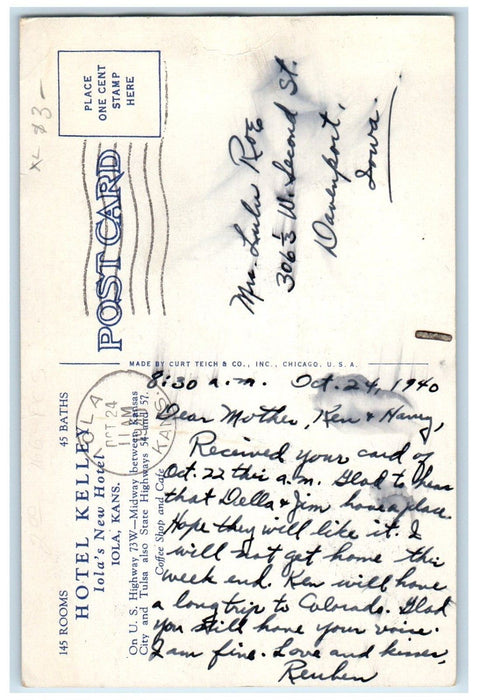 XL $3-
PLACE
ONE CENT
STAMP
HERE
POST CARD
Mrs. Lulu Roe
306½ W. Second St.
Davenport,
Iowa.
MADE BY CURT TEICH & CO., INC., CHICAGO, U.S.A.
IOLA
OCT 24
11 AM
KANS.
145 ROOMS 45 BATHS
HOTEL KELLEY
Iola's New Hotel
IOLA, KANS.
On U. S. Highway 73W—Midway between Kansas
City and Tulsa also State Highways 54 and 57.
Coffee Shop and Cafe
8:30 a.m. Oct. 24, 1940
Dear Mother, Ken & Harvey,
Received your card of
Oct. 22 this a.m. Glad to hear
that Della & Jim have a place.
Hope they will like it. I
will not get home this
week end. Ken will have
a long trip to Colorado. Glad
you still have your voice.
I am fine. Love and kisses,
Reuben